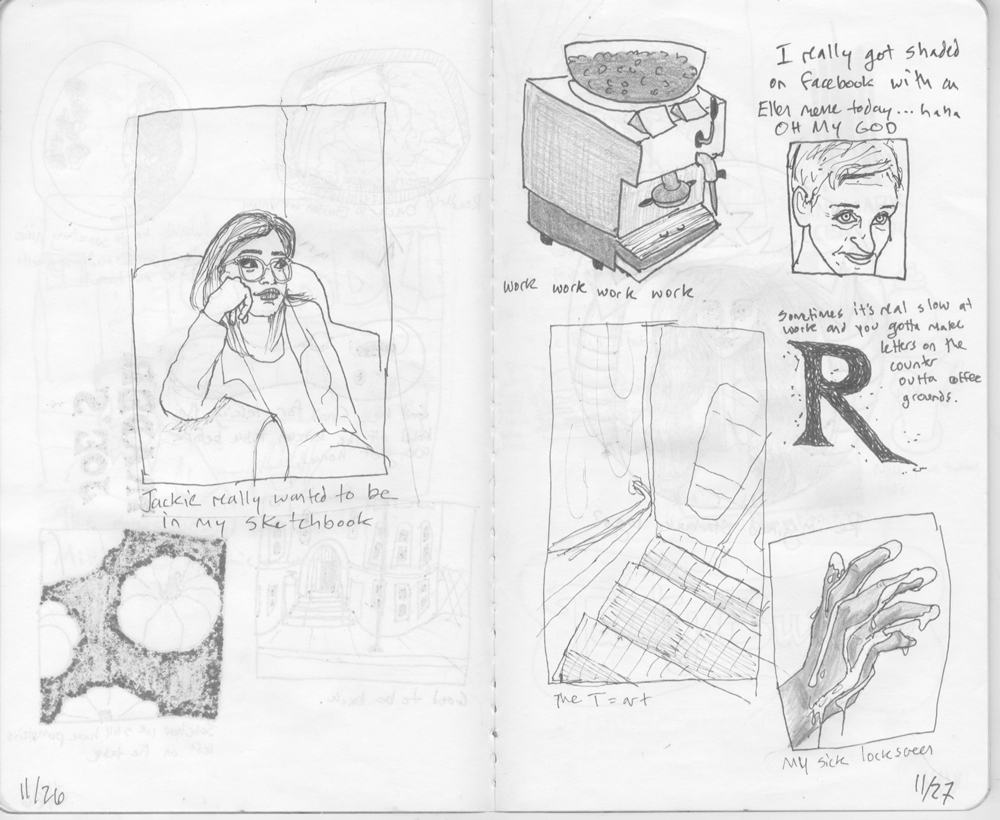 Jackie really wanted to be
in my sketchbook
11/26
I really got shaded
on Facebook with an
Ellen meme today...haha
OH MY GOD
work work work work
Sometimes it's real slow at
work and you gotta make
letters on the
counter
outta coffee
grounds.
R
The T = art
My sick lockscreen
11/27